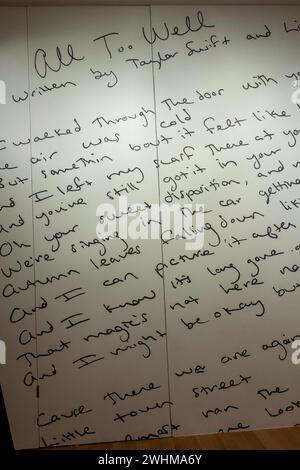 All Too Well
written by Taylor Swift and Li
I walked through the door with y
air was cold
But somethin bout it felt like
I left my scarf there at yo
and you've still got it in your
Oh your sweet disposition, and
We're singing in the car getting
Autumn leaves falling down lik
And I can picture it after
And I know it's long gone a
That magic's not here no
And I might be okay bu
Cause there we are again
Little town street
almost ran the
me look
alamy
Image ID: 2WHMA6Y
www.alamy.com